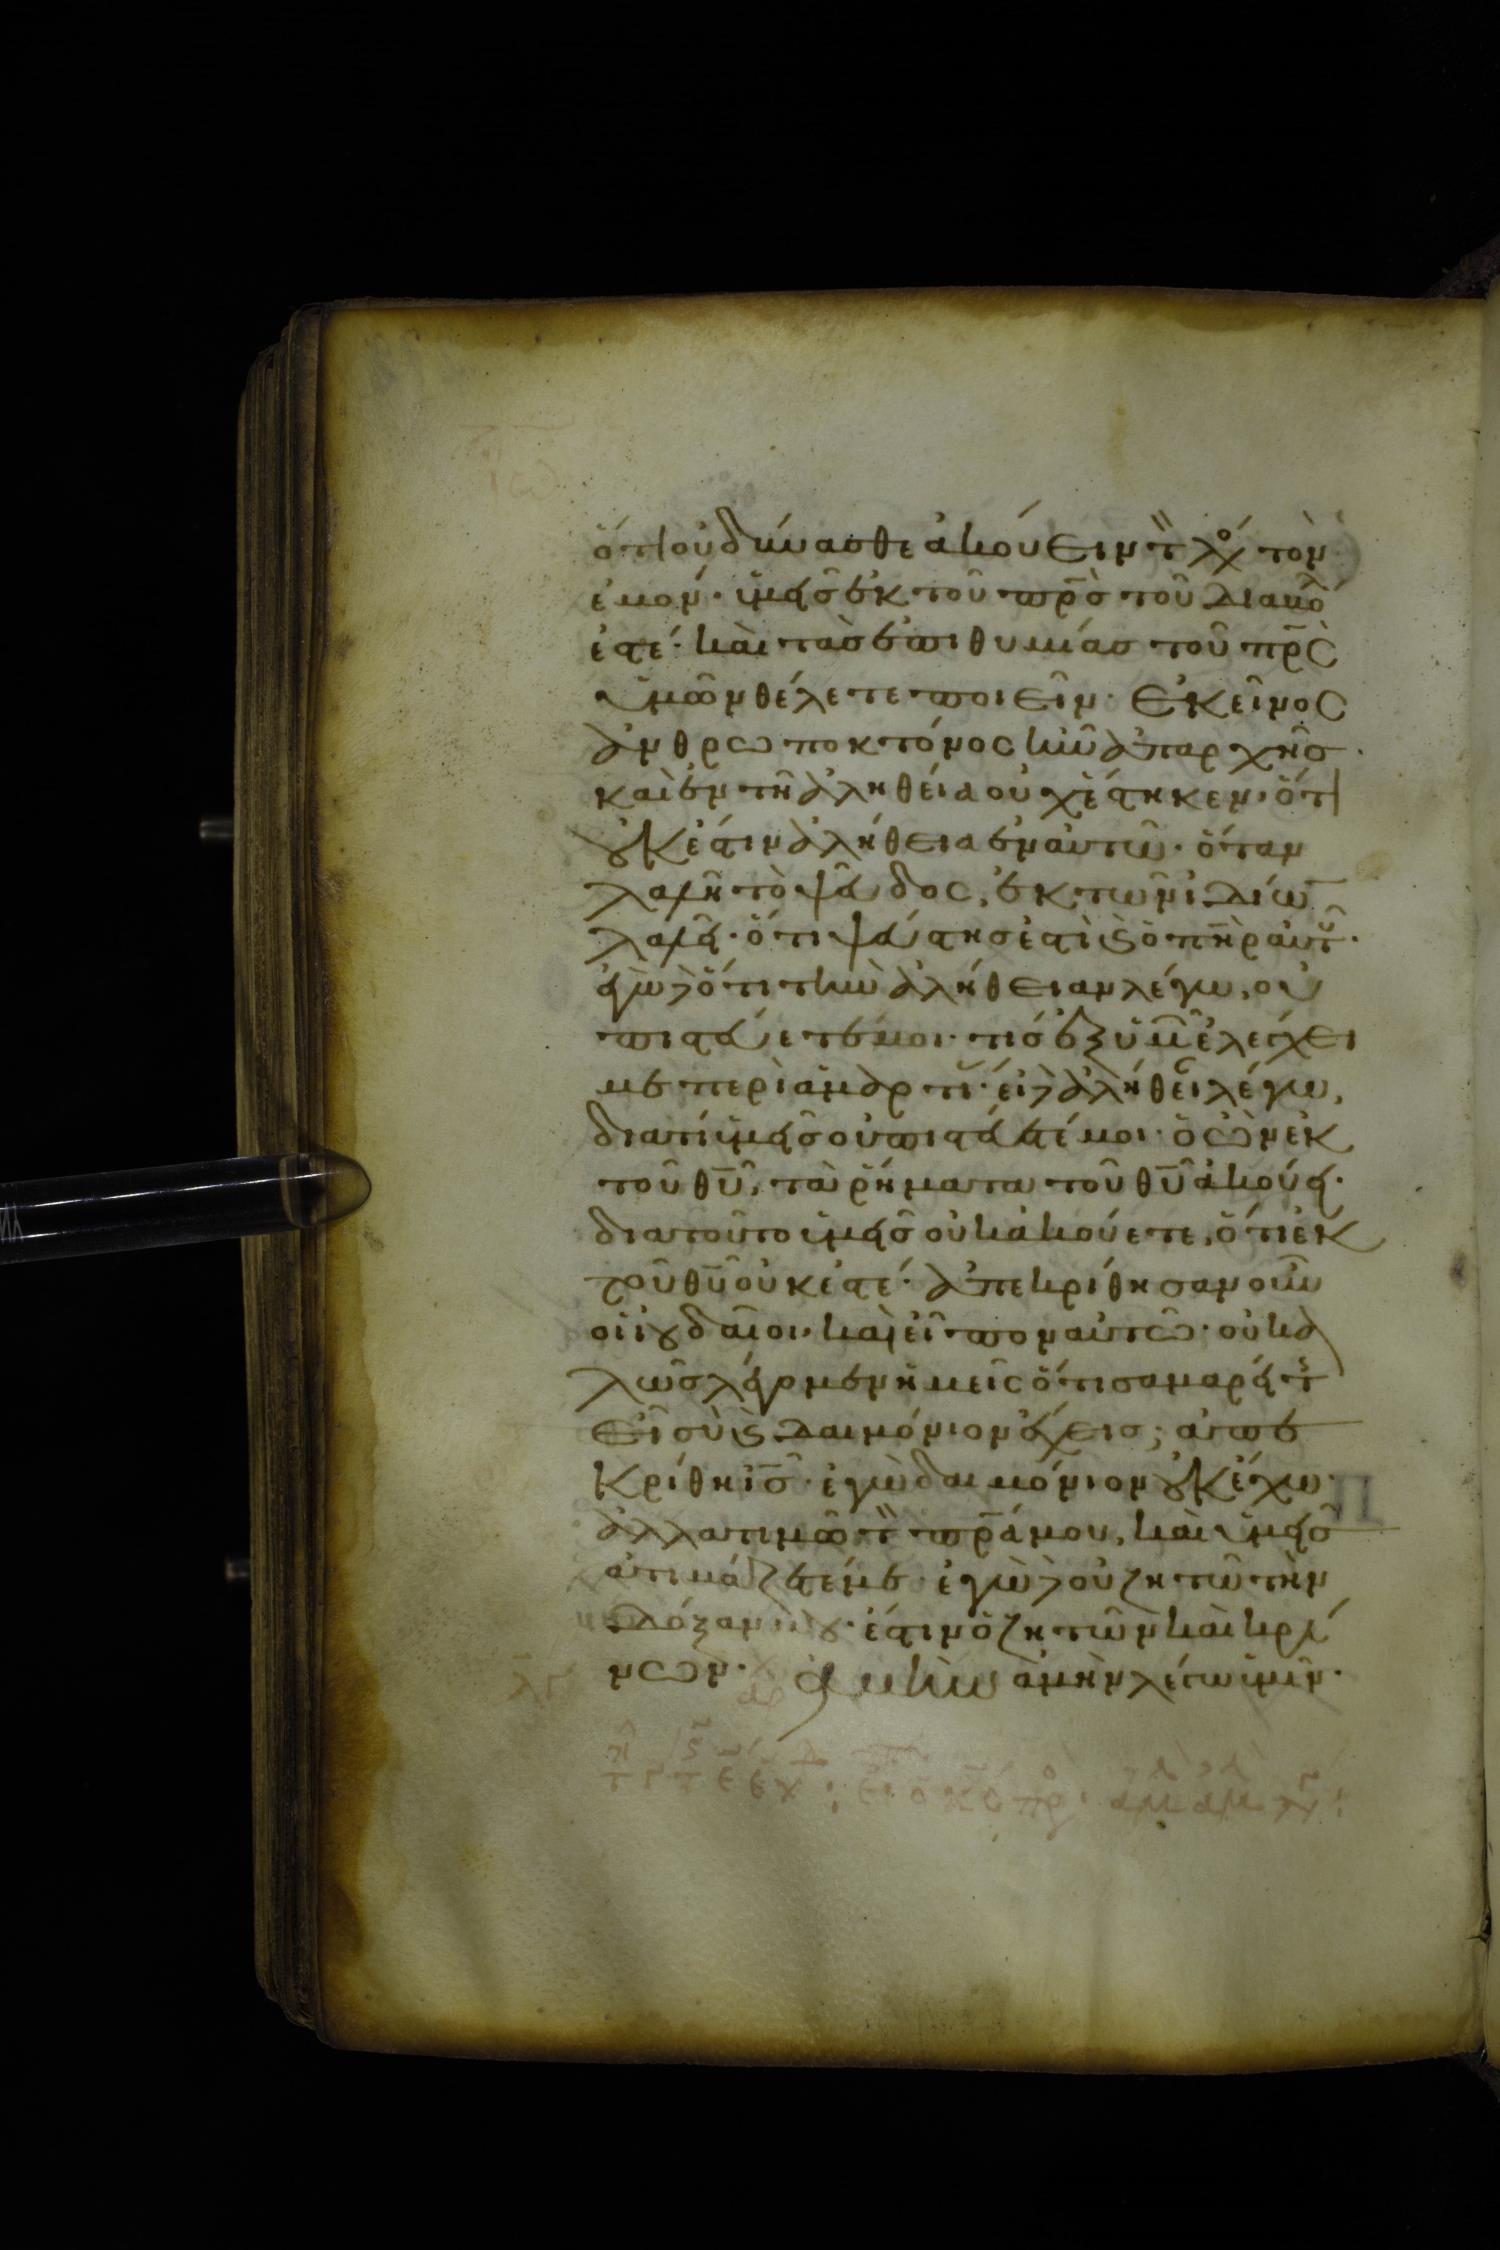 ὅτι οὐ δύνασθε ἀκούειν τ λογ τὸν
ἐμόν· ὑμεῖς ἐκ τοῦ πρ̅ς τοῦ διαβό
ἐστέ· καὶ τὰς ἐπιθυμίας τοῦ πρ̅ς
ὑμῶν θέλετε ποιεῖν· ἐκεῖνος
ἀνθρωποκτόνος ἦν ἀπαρχῆς·
καὶ ἐν τῆ ἀληθεία οὐχ ἕστηκεν· ὅτι
οὐκ ἔστιν ἀλήθεια ἐν αὐτῶ· ὅταν
λαλῆ τὸ ψεῦδος, ἐκ τῶν ἰδίω̅
λαλεῖ· ὅτι ψεύστης ἐστὶ ϗ ὁ π̅η̅ρ αὐτοῦ·
ἐγὼ δὲ ὅτι τὴν ἀλήθειαν λέγω, οὐ
πιστεύετέ μοι· τίς ἐξ ὑμ ἐλέγχει
με περὶ ἁμαρτι· εἰ δὲ ἀλήθει λέγω,
διατί ὑμεῖς οὐ πιστεύετέ μοι· ὁ ὢν ἐκ
τοῦ θ̅υ̅, τὰ ῥήματα τοῦ θ̅υ̅ ἀκούει·
διατοῦτο ὑμεῖς οὐκ ἀκούετε, ὅτι ἐκ
τοῦ θ̅υ̅ οὐκ ἐστέ· ἀπεκρίθησαν οὖν
οἱ ἰουδαῖοι, καὶ εἶπον αὐτῶ· οὐ κα
λῶς λέγομεν ἡμεῖς ὅτι σαμαρείτ
εἶ σὺ ϗ δαιμόνιον ἔχεις; ἀπε
κρίθη ι̅ς̅· ἐγὼ δαιμόνιον οὐκ ἔχω·
ἀλλα τιμῶ τ πρ̅α μου, καὶ ὑμεῖς
ἀτιμάζετέ με· ἐγὼ δὲ οὐ ζητῶ τὴν
δόξαν μου· ἔστιν ὁ ζητῶν καὶ κρί
νων· ἀμὴν ἀμὴν λέγω ὑμῖν·